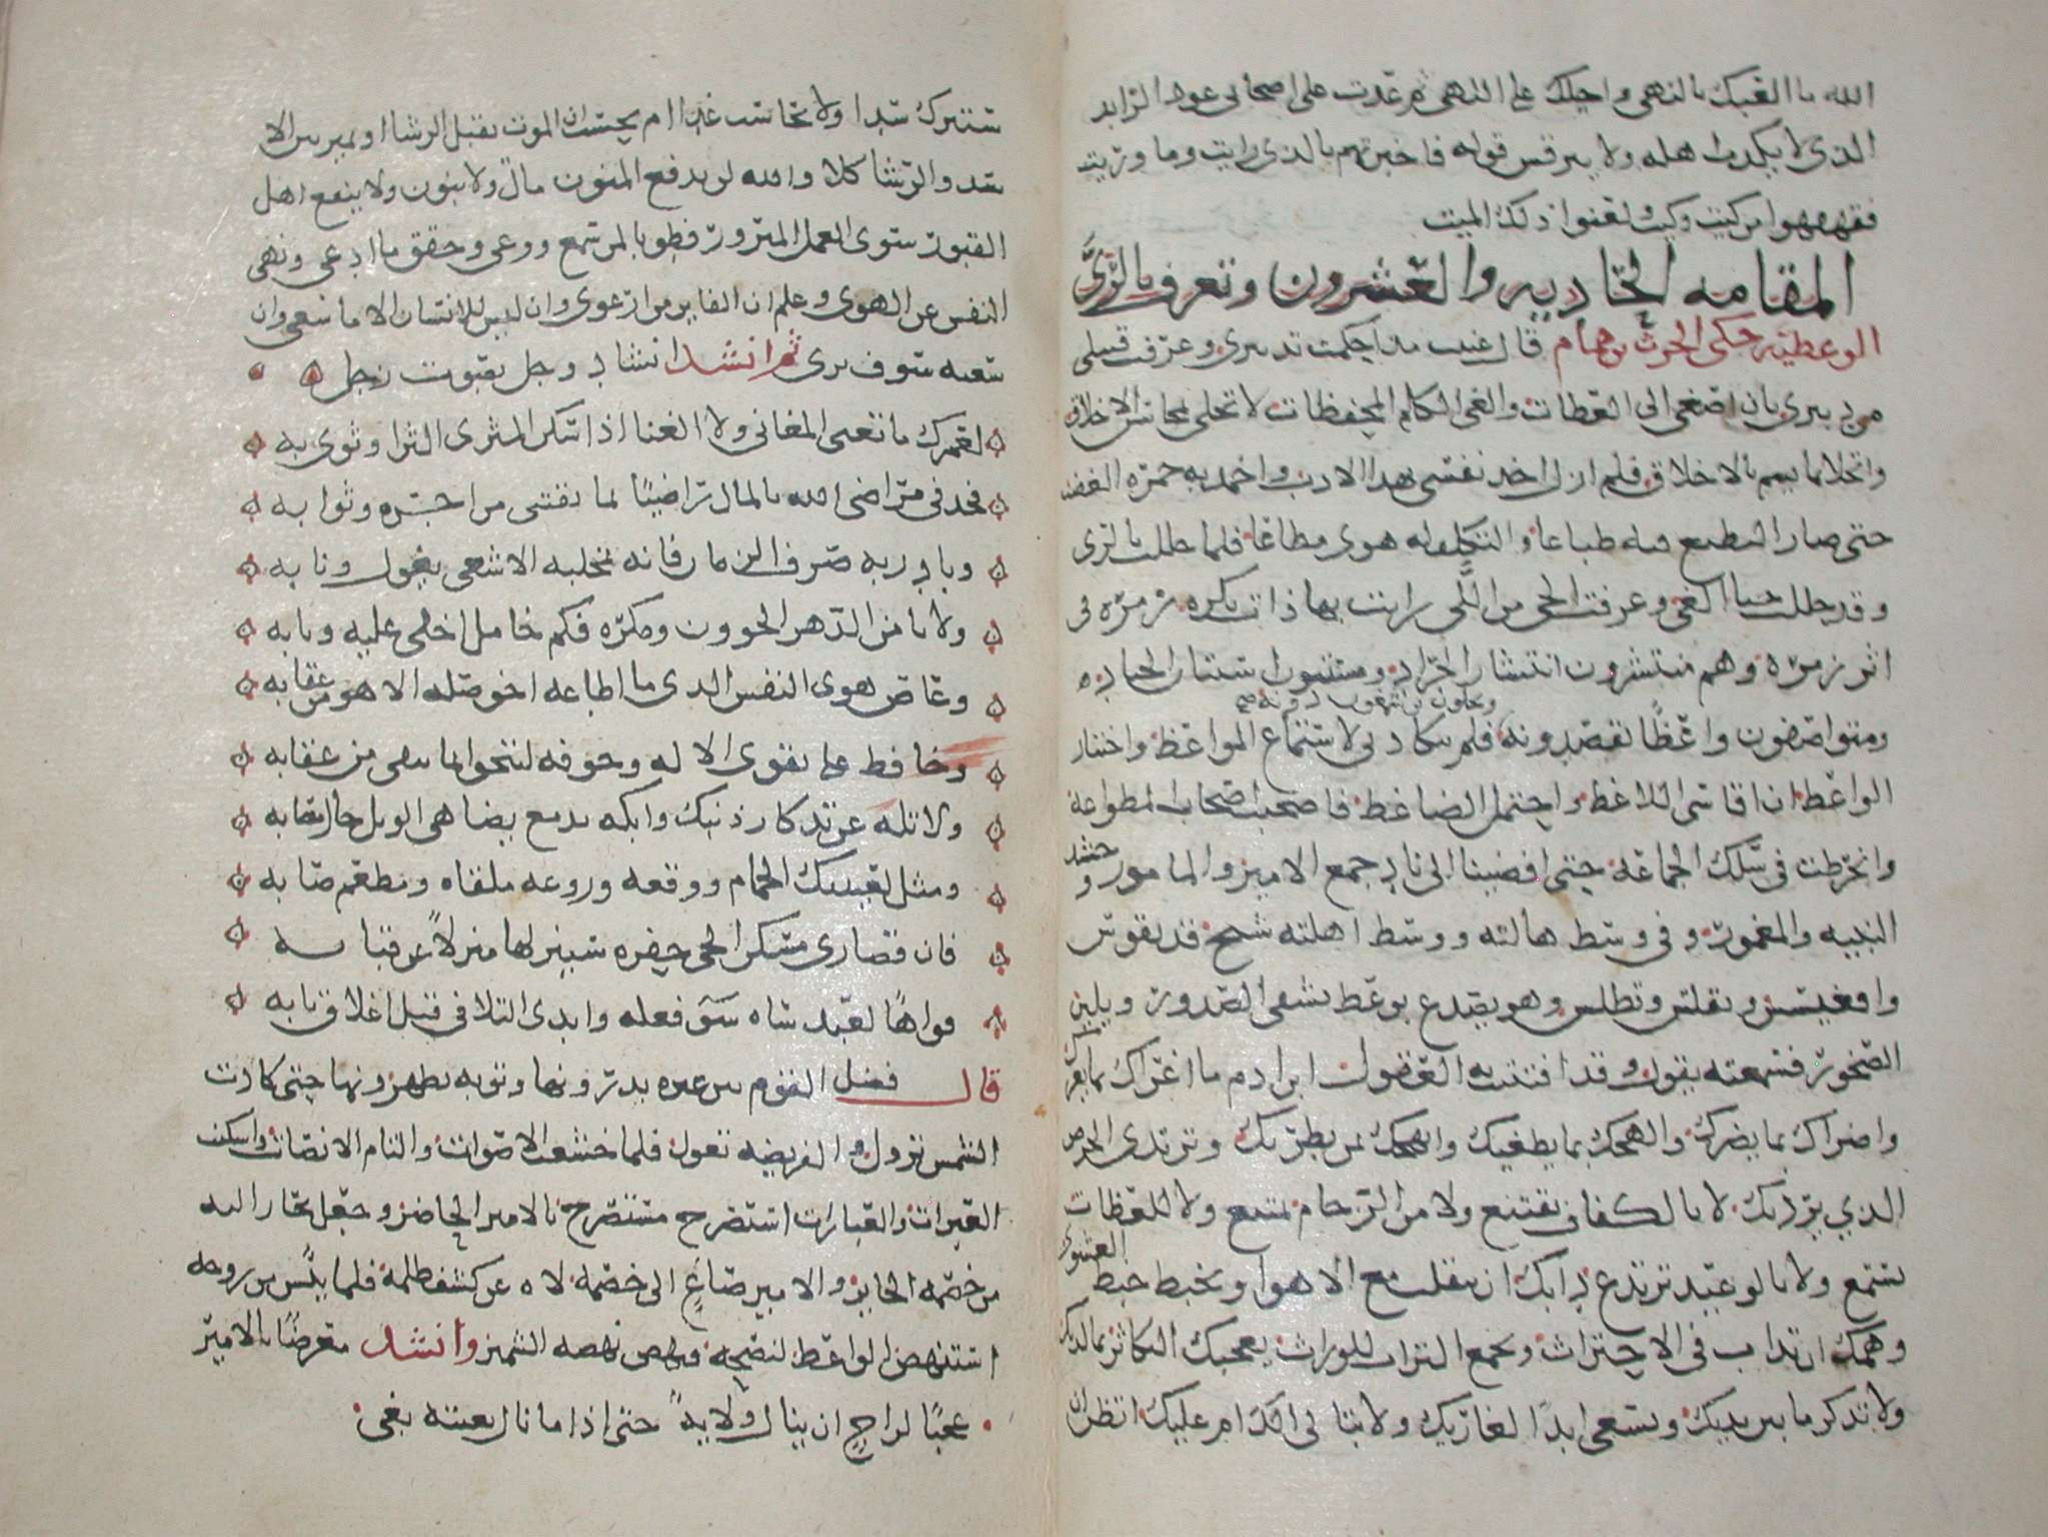 الله ما الفيك بالنهى واحيلك على النهى ثم عدت على اصحابى عود الرايد
الذى لا يكذب اهله ولا يبرقس قوله فاخبرتهم بالذى رايت وما وريت
فقهقهوا من كيت وكيت ولعنوا ذلك الميت
المقامه الحاديه والعشرون وتعرف بالرَّى
الوعظيه حكى الحرث بن همام قال عنيت مذ احكمت تدبيرى وعرفت قبيلى
من دبيرى بان اصغى الى العظات والغى الكلم المحفظات لا تحلى بمحاسن الاخلاق
واتخلا مما يسم بالاخلاق فلم ازل اخذ نفسى بهذا الادب واخمد به جمرة الغضب
حتى صار التطبع فيه طباعا والتكلف له هوى مطاعا فلما حللت بالرى
وقد حللت حبا الغى وعرفت الحى من اللَّى رايت بها ذات بكره زمره فى
اثر زمره وهم منتشرون انتشار الجراد ومستنون استنان الجياد
ومتواصفون واعظًا يقصدونه ويحلون بن شمعون دونه صح فلم يتكاد بى لاستماع المواعظ واختبار
الواعظ ان اقاسى اللاغط واحتمل الضاغط فاصحبت اصحاب المطواعة
وانخرطت فى سلك الجماعة حتى افضينا الى ناد جمع الامير والمامور وحشد
النبيه والمغمور وفى وسط هالته ووسط اهلته شيخ قد تقوس
واقعنسس وتقلنس وتطلس وهو يصدع بوعظ يشفى الصدور ويلين
الصخور فسمعته يقول وقد افتتنت به العقول ابن ادم ما اغراك بما يغرك
واضراك بما يضرك والهجك بما يطغيك وابهجك بمن يطريك وترتدى الحرص
الذي يرديك لا بالكفاف تقتنع ولا من الحرام تمتنع ولا للعظات
تستمع ولا بالوعيد ترتدع دابك ان تتقلب مع الاهوا وتخبط خبط العشوى
وهمك ان تداب فى الاحتراث وتجمع التراث للوراث يعجبك التكاثر بما لديك
ولا تذكر ما بين يديك وتسعى ابدًا لغاريك ولا تبالى الك ام عليك اتظن ان
ستترك سدا ولا تحاسب غدا ام تحسب ان الموت يقبل الرشا او يميز بين الا
سد والرشا كلا والله لن يدفع المنون مال ولا بنون ولا ينفع اهل
القبور سوى العمل المبرور فطوبا لمن سمع ووعى وحقق ما ادعى ونهى
النفس عن الهوى وعلم ان الفايز من ارعوى وان ليس للانسان الا ما سعى وان
سعيه سوف يرى ثم انشد انشاد وجل بصوت زجل
لعمرك ما تغنى المغانى ولا الغنا اذا سكن المثرى الثرا وثوى به
فجد فى مراضى الله بالمال راضيًا لما تقتنى من اجره وثوابه
وبادر به صرف الزمان فانه بمخلبه الاشغى يغول ونابه
ولا تامن الدهر الخوون ومكره فكم خامل اخنى عليه ونابه
وعاص هوى النفس الذى ما اطاعه اخو ضله الا هوى من عقابه
وحافظ على تقوى الاله وخوفه لتنجوا مما يتقى من عقابه
ولا تله عن تذكار ذنبك وابكه بدمع يضاهى الوبل حال مصابه
ومثل لعينيك الحمام ووقعه وروعه ملقاه ومطعم صابه
فان قصارى مسكن الحى حفره سينزلها منزلًا عن قبابه
فواهًا لعبد ساه سوء فعله وابدى التلافى قبل اغلاق بابه
قال فضل القوم بين عبره يذرونها وتوبه يظهرونها حتى كادت
الشمس تزول والفريضه تعول فلما خشعت الاصوات والتام الانصات واستكنت
العبرات والعبارات استصرخ مستصرخ بالامير الحاضر وجعل يجار اليه
من خصمه الجاير والامير صاغٍ الى خصمه لاه عن كشف ظلمه فلما يئس من روحه
استنهض الواعظ لنصحه فنهض نهضه الشمير وانشد معرضًا بالامير
عجبًا لراجٍ ان ينال ولايهً حتى اذا ما نال بغيته بغى